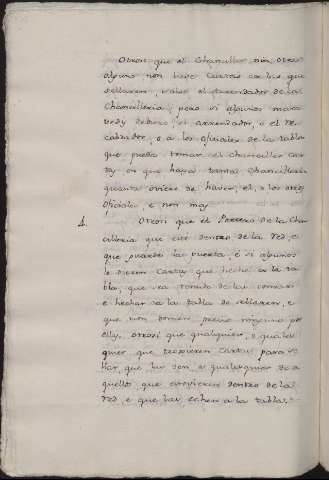 Otrosi que el Chanciller nin otro
alguno non lieve Cartas en los que
sellaren, salvo el arrendador de la
Chancilleria; pero si algunos mara
vedis debiere el arrendador, o el Re
cabdador, o a los oficiales de la tabla
que pueda tomar el Chanciller Car
tas en que haya tanta Chancilleria
quanta oviere de haver el, o los otros
oficiales e non mas
4. Otrosi que el Portero de la Chan
cilleria que esté dentro de la red, e
que guarde la puerta, é si algunos
le dieren Cartas que heche en la ta
bla, que sea tenudo de las tomar
e hechar en la tabla do sellaren, e
que non tomen precio ninguno por
ello, otrosi que qualquier, o quales
quier que troxieren Cartas para se
llar, que las den a qualesquier de a
quellos que estovieren dentro de la
red, e que las echen a la tabla.